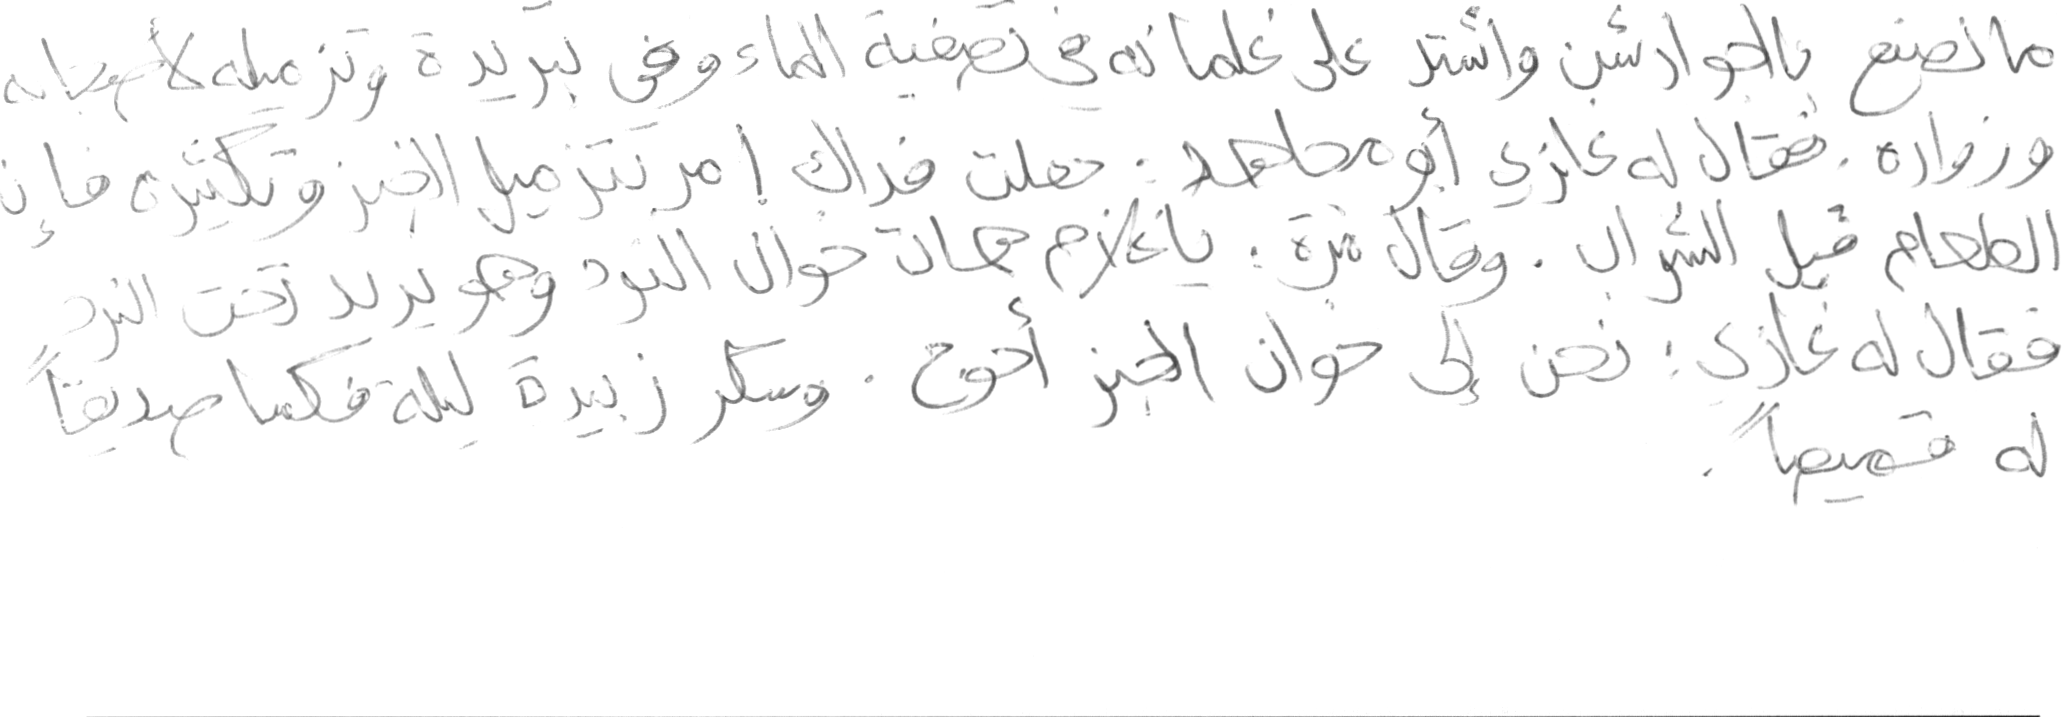 ما نصنع بالجوارشن واشتد على غلمانه في تصفية الماء وفي تبريدة وتزميله لأصحابه
وزواره . فقال له غازي أبو مجاهد : جعلت فداك ! مر بتزميل الخبز وتكثيره فإن
الطعام قبل الشراب . وقال مرة : يا غلام هات خوان النرد وهو يريد تخت النرد
فقال له غازي : نحن إلى خوان الخبز أحوج . وسكر زبيدة ليلة فكسا صديقاً
له قميصاً .